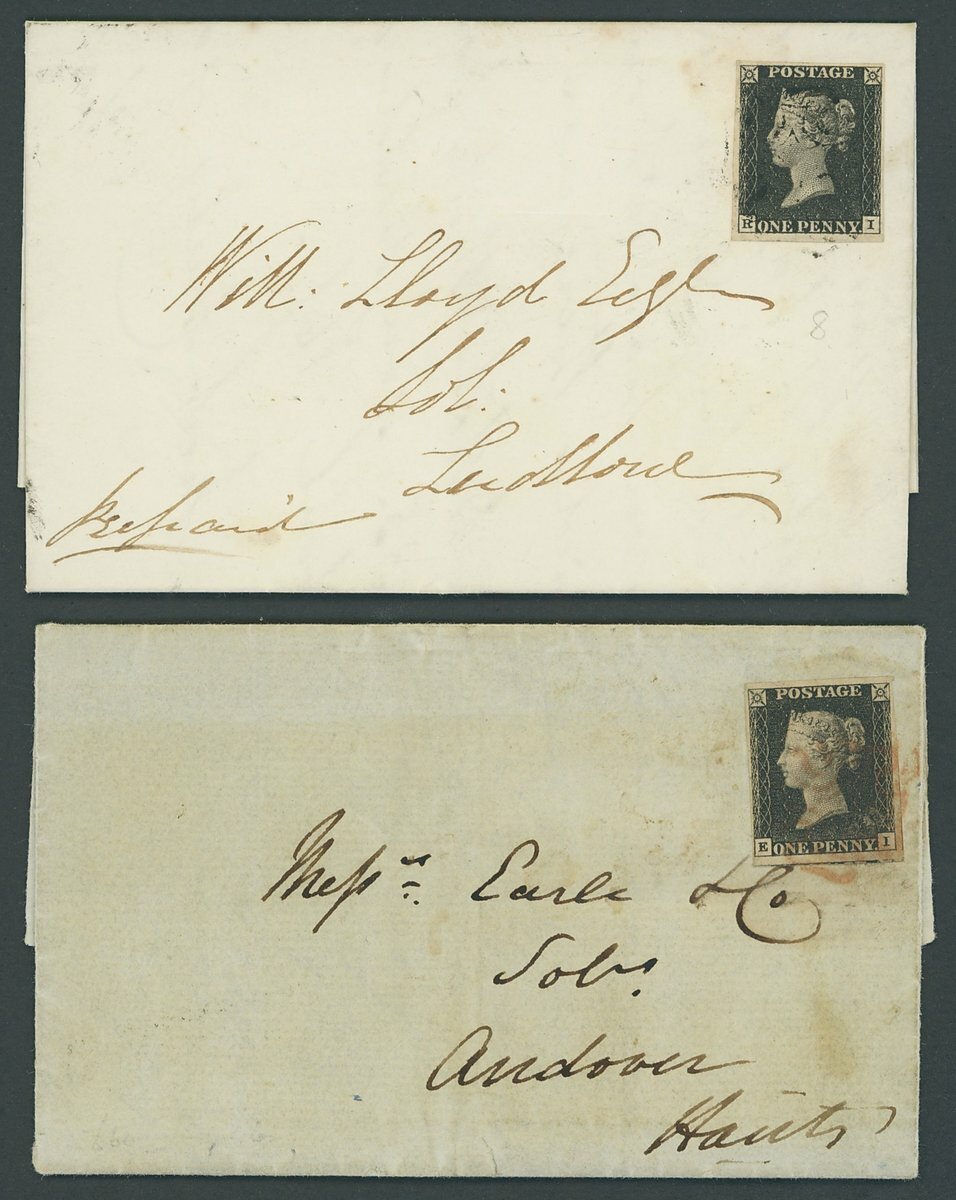 POSTAGE
R ONE PENNY I
Will: Lloyd Esqr
8
Sol:
Ludlow
Prepaid
POSTAGE
E ONE PENNY I
Messrs Earle & Co
Solrs
Andover
Hants